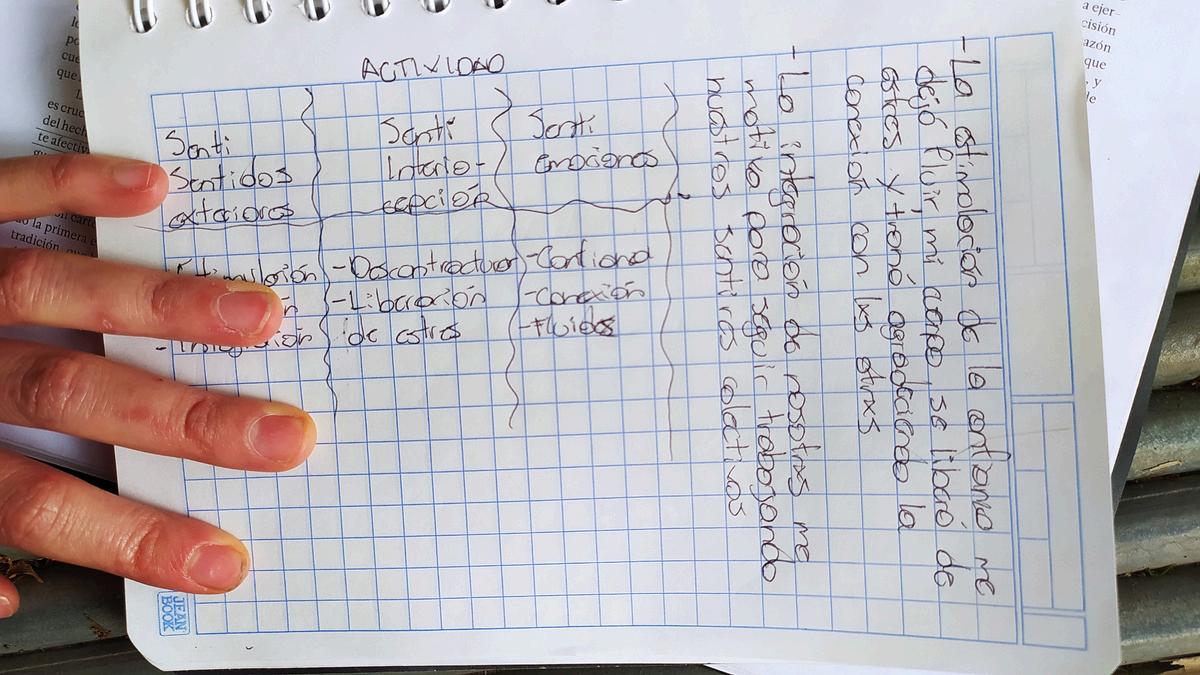 ACTIVIDAD
Senti
Sentidos
exteriores
Senti
Interio-
cepción
Senti
emociones
-Descontracturar
-Liberación
de estres
-Confianza
-Conexión
-Fluidos
-La estimulación de la entorno me
dejó fluir mi cuerpo se liberó de
estres y tronó agradeciendo la
conexión con lxs otrxs
-La integración de nosotras me
motivo para seguir trabajando
nuestros sentires colectivos
JEAN
BOOK
a ejer-
cisión
azón
que
, y
le
po
cue
que
es cruc
del hech
te afectiv
do la primera e
tradición, que